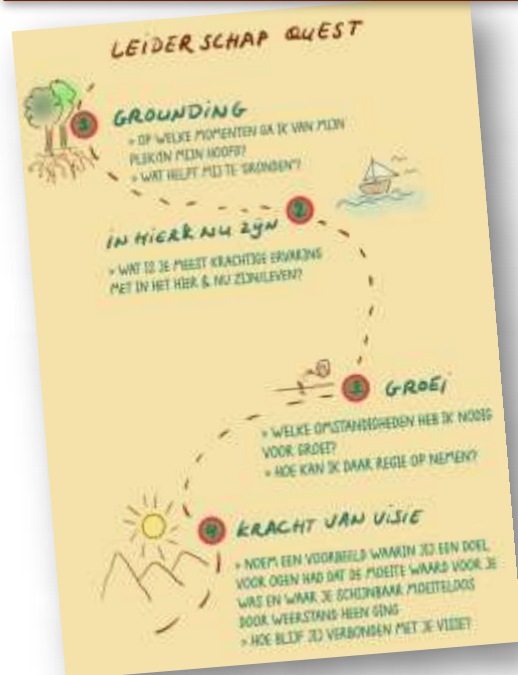 LEIDERSCHAP QUEST
1
GROUNDING
» OP WELKE MOMENTEN GA IK VAN MIJN
PLEK/IN MIJN HOOFD?
» WAT HELPT MIJ TE 'GRONDEN'?
2
IN HIER & NU ZIJN
» WAT IS JE MEEST KRACHTIGE ERVARING
MET IN HET HIER & NU ZIJN/LEVEN?
3
GROEI
» WELKE OMSTANDIGHEDEN HEB IK NODIG
VOOR GROEI?
» HOE KAN IK DAAR REGIE OP NEMEN?
4
KRACHT VAN VISIE
» NOEM EEN VOORBEELD WAARIN JIJ EEN DOEL
VOOR OGEN HAD DAT DE MOEITE WAARD VOOR JE
WAS EN WAAR JE SCHIJNBAAR MOEITELOOS
DOOR WEERSTAND HEEN GING
» HOE BLIJF JIJ VERBONDEN MET JE VISIE?